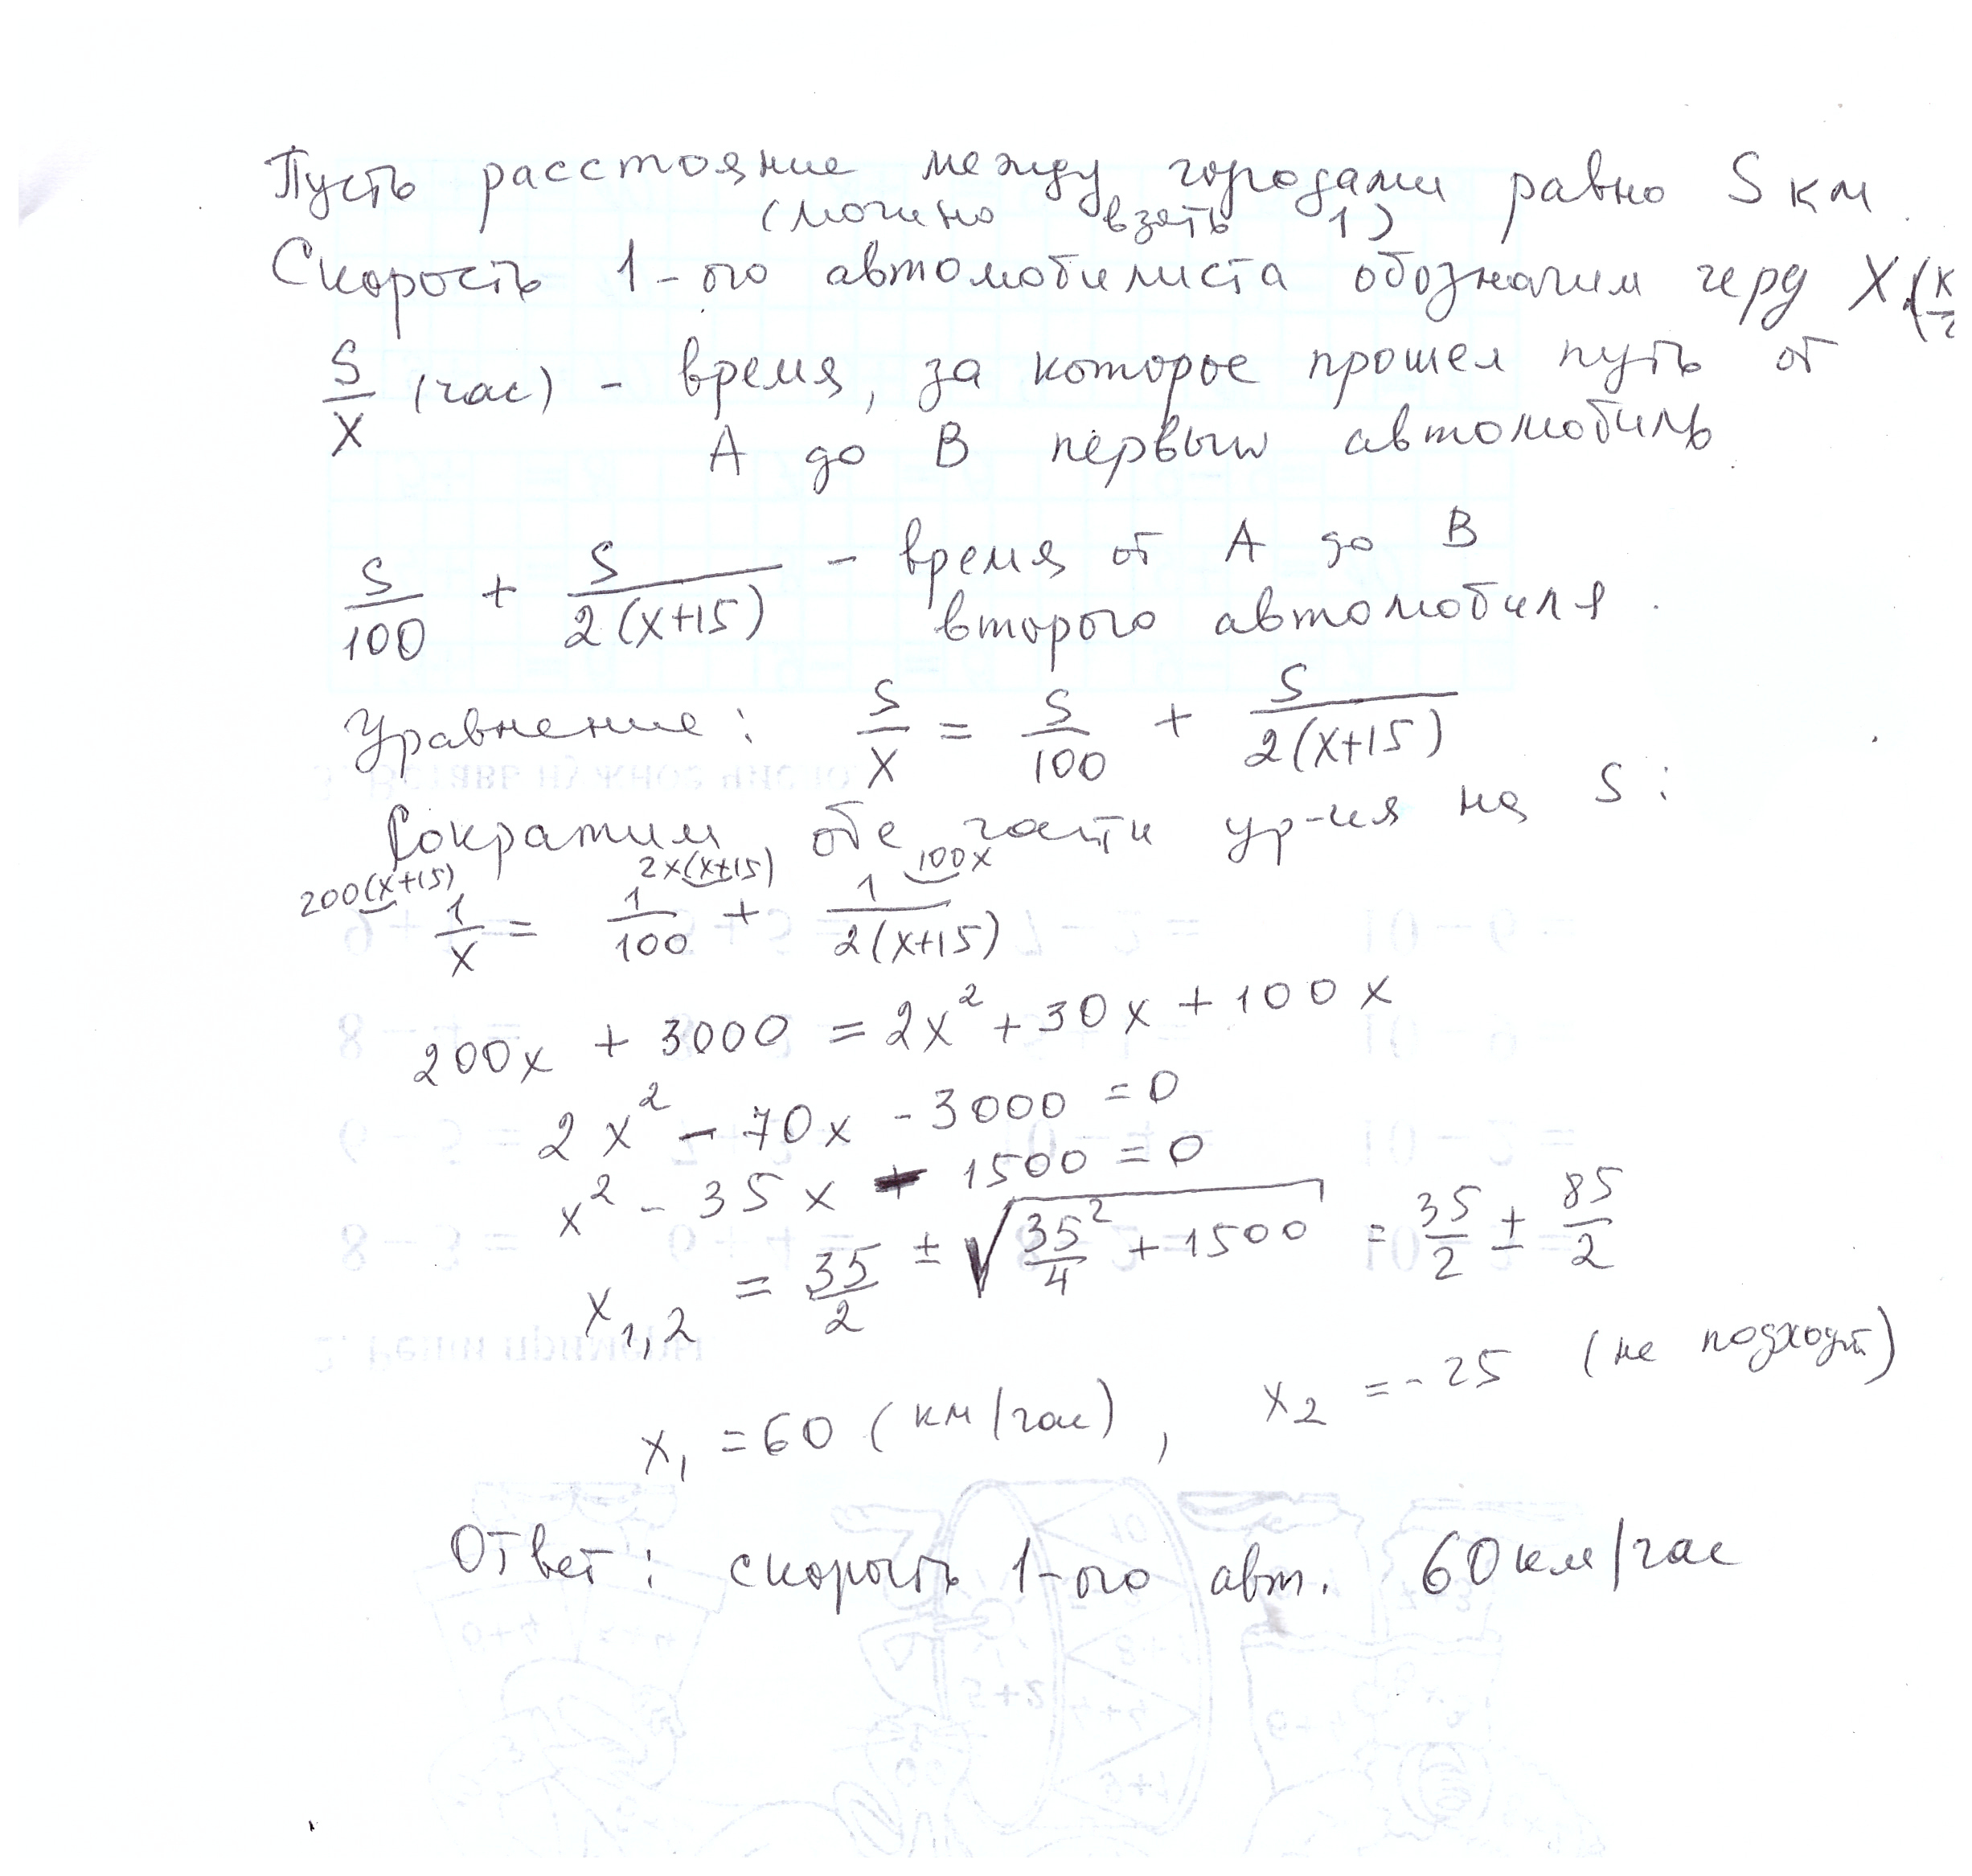 Пусть расстояние между городами равно S км.
(можно взять 1)
Скорость 1-ого автомобилиста обозначим через X (
S/X (час) - время, за которое прошел путь от
A до B первый автомобиль
S/100 + S/2(x+15) - время от A до B
второго автомобиля.
Уравнение: S/X = S/100 + S/2(x+15)
Сократим обе части ур-ия на S:
200(x+15) 2x(x+15) 100x
1/x = 1/100 + 1/2(x+15)
200x + 3000 = 2x² + 30x + 100x
2x² - 70x - 3000 = 0
x² - 35x - 1500 = 0
x1,2 = 35/2 ± √(35²/4 + 1500) = 35/2 ± 85/2
x1 = 60 (км/час), x2 = -25 (не подходит)
Ответ: скорость 1-ого авт. 60 км/час